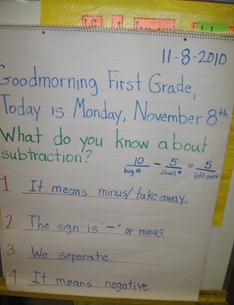 11-8-2010
Goodmorning First Grade,
Today is Monday, November 8th
What do you know about
subtraction? 10 - 5 = 5
big # small # left over
1 It means minus/take away.
2 The sign is "-" or minus.
3 We seperate.
4 It means negative.